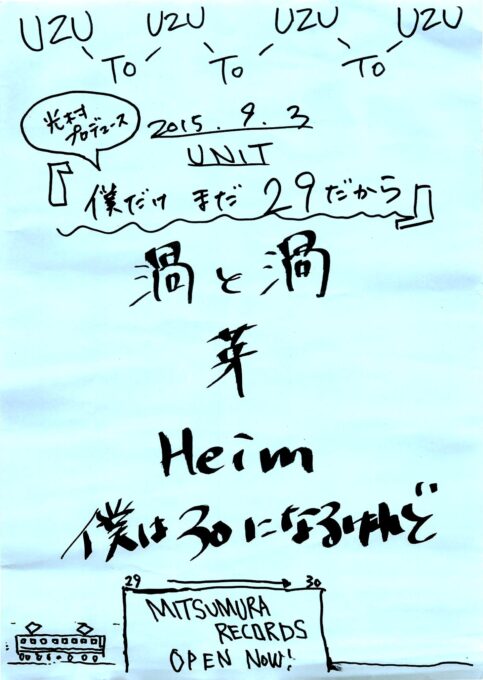 UZU TO UZU TO UZU TO UZU
光村
プロデュース
2015.9.3
UNIT
『僕だけ まだ 29だから』
渦と渦
芽
Heim
僕は30になるけれど
29 30
MITSUMURA
RECORDS
OPEN NOW!